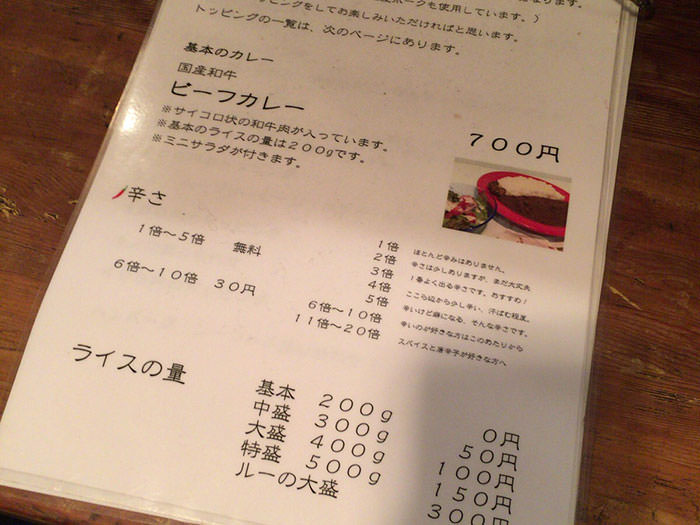 ポークも使用しています。)
ッピングをしてお楽しみいただければと思います。
トッピングの一覧は、次のページにあります。
基本のカレー
国産和牛
ビーフカレー
700円
※サイコロ状の和牛肉が入っています。
※基本のライスの量は200gです。
※ミニサラダが付きます。
辛さ
1倍～5倍 無料
6倍～10倍 30円
1倍 ほとんど辛みはありません。
2倍 辛さは少しありますが、まだ大丈夫
3倍 1番よく出る辛さです。おすすめ!
4倍 ここら辺から少し辛い、汗ばむ程度。
5倍 辛いけど癖になる、そんな辛さです。
6倍～10倍 辛いのが好きな方はこのあたりから
11倍～20倍 スパイスと唐辛子が好きな方へ
ライスの量
基本 200g 0円
中盛 300g 50円
大盛 400g 100円
特盛 500g 150円
ルーの大盛 300円